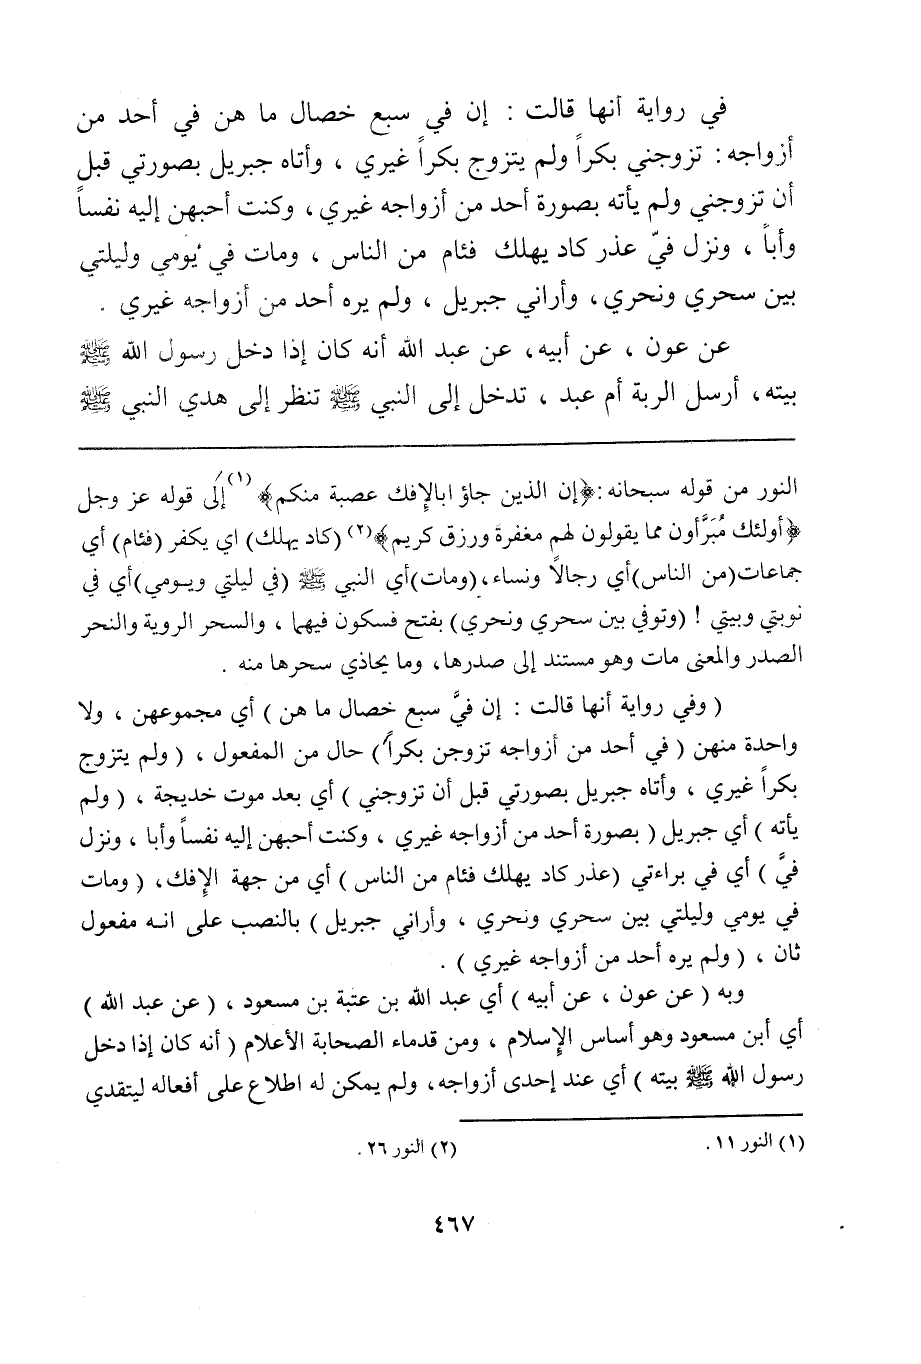 في رواية أنها قالت : إن في سبع خصال ما هن في أحد من
أزواجه : تزوجني بكراً ولم يتزوج بكراً غيري ، وأتاه جبريل بصورتي قبل
أن تزوجني ولم يأته بصورة أحد من أزواجه غيري ، وكنت أحبهن إليه نفساً
وأباً ، ونزل فيّ عذر كاد يهلك فئام من الناس ، ومات في يومي وليلتي
بين سحري ونحري ، وأراني جبريل ، ولم يره أحد من أزواجه غيري .
عن عون ، عن أبيه ، عن عبد الله أنه كان إذا دخل رسول الله ﷺ
بيته ، أرسل الربة أم عبد ، تدخل إلى النبي ﷺ تنظر إلى هدي النبي ﷺ
النور من قوله سبحانه : ﴿إن الذين جاؤ ابالإفك عصبة منكم﴾ (١) إلى قوله عز وجل
﴿أولئك مُبَرَّأون مما يقولون لهم مغفرة ورزق كريم﴾ (٢) (كاد يهلك) اي يكفر (فئام) أي
جماعات (من الناس) أي رجالاً ونساء ، (ومات) أي النبي ﷺ (في ليلتي ويومي) أي في
نوبتي وبيتي ! (وتوفي بين سحري ونحري) بفتح فسكون فيهما ، والسحر الروية والنحر
الصدر والمعنى مات وهو مستند إلى صدرها ، وما يحاذي سحرها منه .
( وفي رواية أنها قالت : إن فيَّ سبع خصال ما هن ) أي مجموعهن ، ولا
واحدة منهن ( في أحد من أزواجه تزوجن بكراً ) حال من المفعول ، ( ولم يتزوج
بكراً غيري ، وأتاه جبريل بصورتي قبل أن تزوجني ) أي بعد موت خديجة ، ( ولم
يأته ) أي جبريل ( بصورة أحد من أزواجه غيري ، وكنت أحبهن إليه نفساً وأبا ، ونزل
فيَّ ) أي في براءتي (عذر كاد يهلك فئام من الناس ) أي من جهة الإفك ، ( ومات
في يومي وليلتي بين سحري ونحري ، وأراني جبريل ) بالنصب على انه مفعول
ثان ، ( ولم يره أحد من أزواجه غيري ) .
وبه ( عن عون ، عن أبيه ) أي عبد الله بن عتبة بن مسعود ، ( عن عبد الله )
أي أبن مسعود وهو أساس الإسلام ، ومن قدماء الصحابة الأعلام ( أنه كان إذا دخل
رسول الله ﷺ بيته ) أي عند إحدى أزواجه ، ولم يمكن له اطلاع على أفعاله ليتقدي
(١) النور ١١ . (٢) النور ٢٦ .
٤٦٧